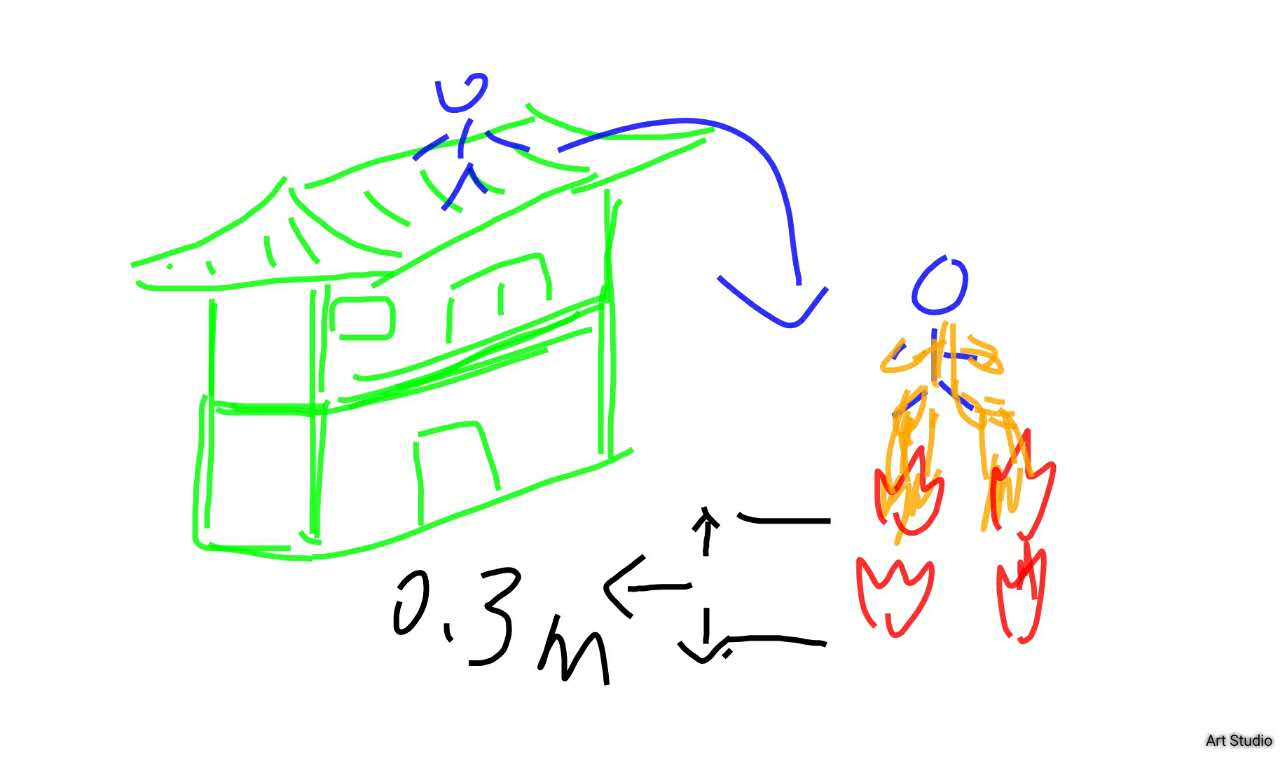 0.3m
Art Studio